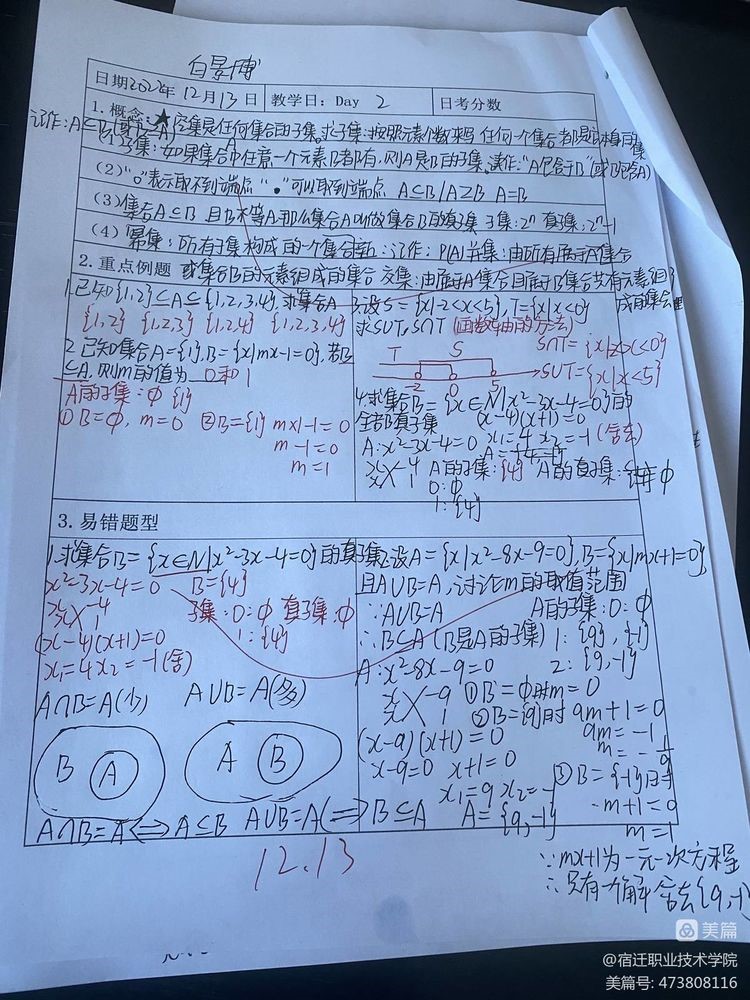 白景博
日期2022年12月13日 教学日: Day 2 日考分数
1. 概念: ★空集是任何集合的子集。求子集:按照元素个数来写 任何一个集合都是它本身的子集
记作: A⊆B (或B⊇A)
(1) 子集: 如果集合A中任意一个元素B都有, 则A是B的子集. 读作: "A包含于B"(或B包含A)
(2) "。"表示取不到端点 "."可以取到端点 A⊆B / A⊇B A=B
(3) 集合A⊆B 且B不等A, 那么集合A叫做集合B的真子集 子集: 2ⁿ 真子集: 2ⁿ-1
(4) 幂集: 所有子集构成的一个集合 记作: P(A) 并集: 由所有属于A集合
2. 重点例题 或集合B的元素组成的集合 交集: 由属于A集合且属于B集合共有元素组
成的集合
1.已知{1,2}⊆A⊆{1,2,3,4}, 求集合A
{1,2} {1,2,3} {1,2,4} {1,2,3,4}
2.已知集合A={1}, B={x|mx-1=0}, 若B
⊆A, 则m的值为 0和1
A的子集: ф {1}
①B=ф, m=0 ②B={1} m×1-1=0
m-1=0
m=1
3.设S={x|-2<x<5}, T={x|x<0}
求S∪T, S∩T (画数轴的方法)
S∩T={x|-2<x<0}
T S
-2 0 5
S∪T={x|x<5}
4.求集合B={x∈N|x²-3x-4=0}的
全部真子集 (x-4)(x+1)=0
A: x²-3x-4=0 x₁=4 x₂=-1 (舍去)
x -4
x 1
A的子集: {4} A的真子集: ф
0: ф
1: {4}
3. 易错题型
1.求集合B={x∈N|x²-3x-4=0}的真子集
x²-3x-4=0 B={4}
x -4
x 1
子集: 0: ф 真子集: ф
1: {4}
(x-4)(x+1)=0
x₁=4 x₂=-1 (舍)
A∩B=A(少) A∪B=A(多)
B A A B
A∩B=A⟺A⊆B A∪B=A⟺B⊆A
2.设A={x|x²-8x-9=0}, B={x|mx+1=0},
且A∪B=A, 讨论m的取值范围
∵A∪B=A A的子集: 0: ф
∴B⊆A (B是A的子集) 1: {9}, {-1}
A: x²-8x-9=0 2: {9,-1}
x -9
x 1
①B=ф时m=0
②B={9}时 9m+1=0
(x-9)(x+1)=0 9m=-1
x-9=0 x+1=0 m=-1/9
x₁=9 x₂=-1 ③B={-1}时
-m+1=0
A={9,-1} m=1
∵mx+1为一元一次方程
∴只有一解 舍去{9,-1}
12.13
美篇
@宿迁职业技术学院
美篇号: 473808116